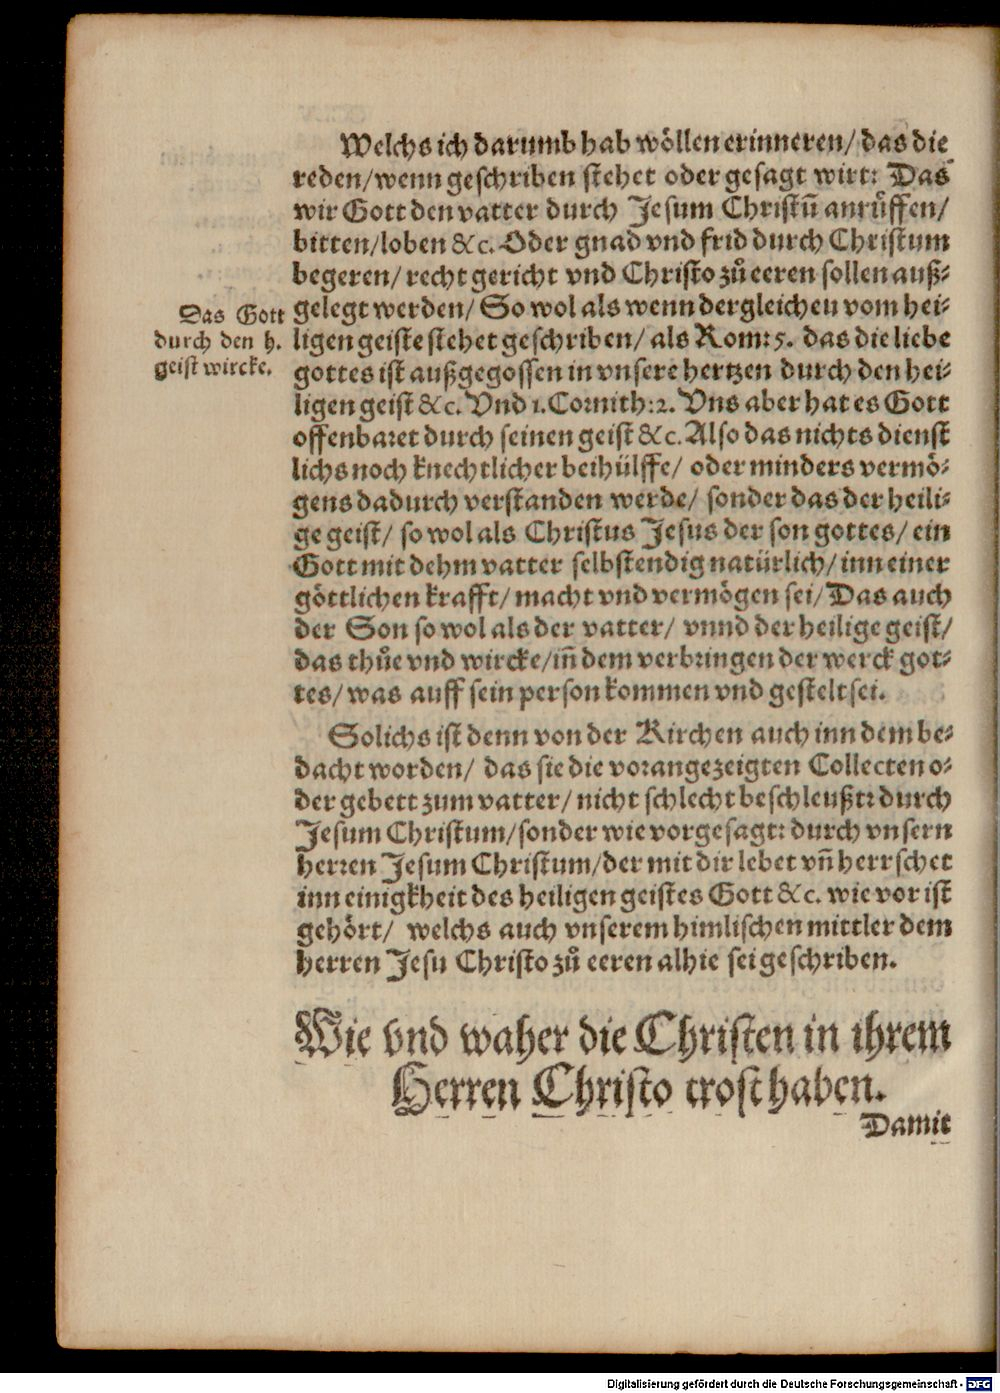 Welchs ich darumb hab wöllen erinneren/ das die
reden/wenn geschriben stehet oder gesagt wirt: Das
wir Gott den vatter durch Jesum Christū anrůffen/
bitten/loben &c. Oder gnad vnd frid durch Christum
begeren/ recht gericht vnd Christo zů eeren sollen auß⸗
gelegt werden/ So wol als wenn dergleichen vom hei⸗
ligen geiste stehet geschriben/ als Rom:5. das die liebe
gottes ist außgegossen in vnsere hertzen durch den hei⸗
ligen geist &c. Vnd 1.Corinth:2. Vns aber hat es Gott
offenbaret durch seinen geist &c. Also das nichts dienst
lichs noch knechtlicher beihülffe/ oder minders vermö⸗
gens dadurch verstanden werde/ sonder das der heili⸗
ge geist/ so wol als Christus Jesus der son gottes/ ein
Gott mit dehm vatter selbstendig natürlich/ inn einer
göttlichen krafft/ macht vnd vermögen sei/ Das auch
der Son so wol als der vatter/ vnnd der heilige geist/
das thůe vnd wircke/iñ dem verbringen der werck got⸗
tes/ was auff sein person kommen vnd gestelt sei.
Das Gott
durch den h.
geist wircke.
Solichs ist denn von der Kirchen auch inn dem be⸗
dacht worden/ das sie die vorangezeigten Collecten o⸗
der gebett zum vatter/ nicht schlecht beschleußt: durch
Jesum Christum/sonder wie vorgesagt: durch vnsern
herren Jesum Christum/der mit dir lebet vñ herrschet
inn einigkheit des heiligen geistes Gott &c. wie vor ist
gehört/ welchs auch vnserem himlischen mittler dem
herren Jesu Christo zů eeren alhie sei geschriben.
Wie vnd waher die Christen in ihrem
Herren Christo trost haben.
Damit
Digitalisierung gefördert durch die Deutsche Forschungsgemeinschaft - DFG